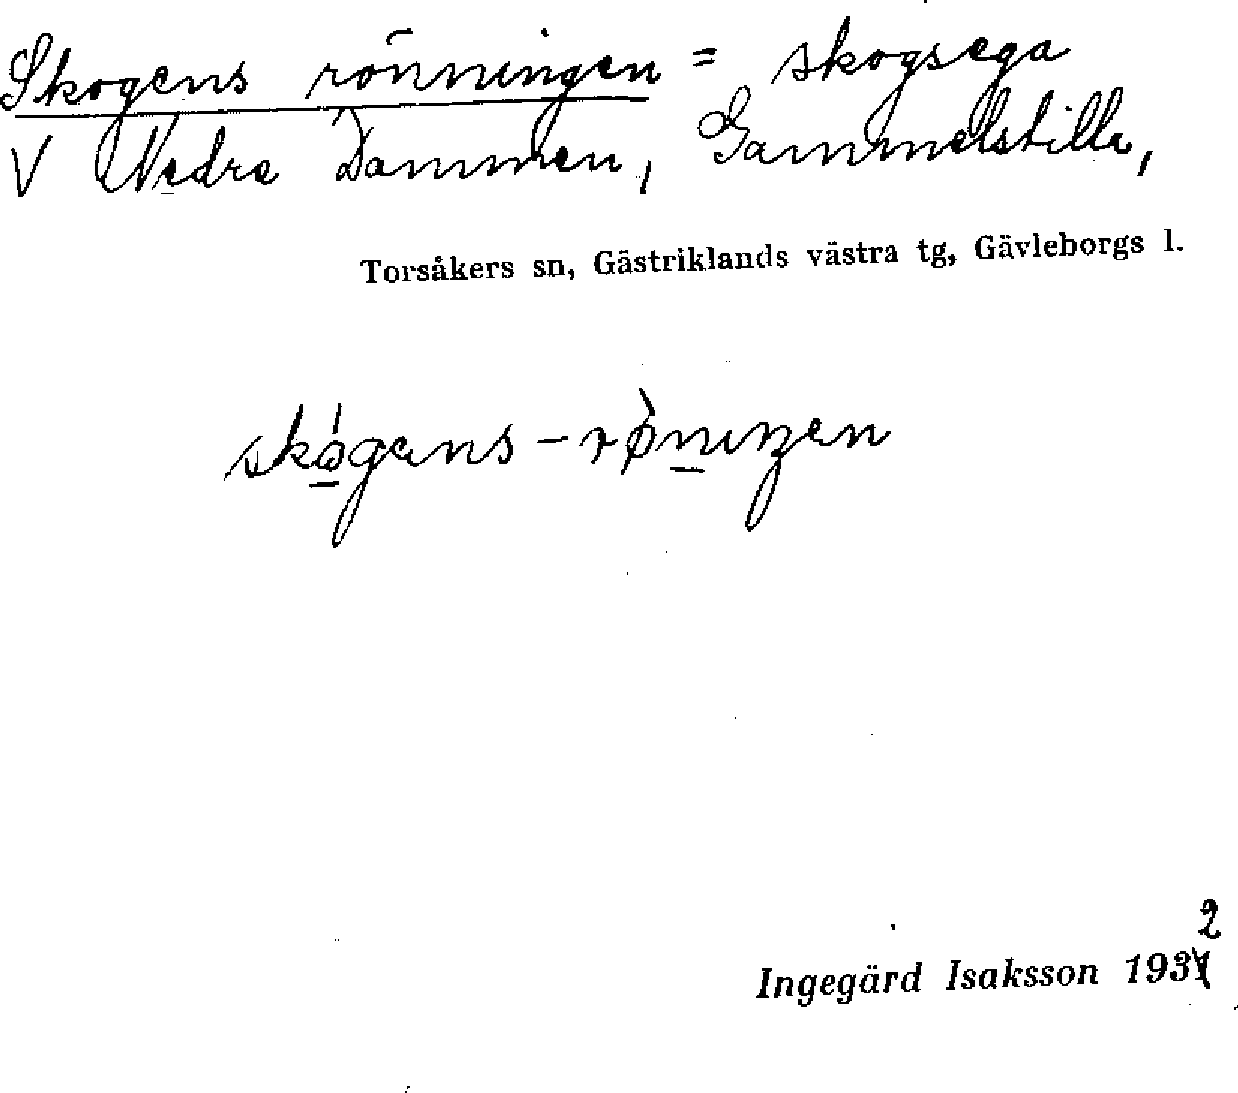 Skogens rönningen = skogsega
V Nedre Dammen, Gammelstilla,
Torsåkers sn, Gästriklands västra tg, Gävleborgs l.
skǫ́gens-rø̀n̠ıŋen
2
Ingegärd Isaksson 1931